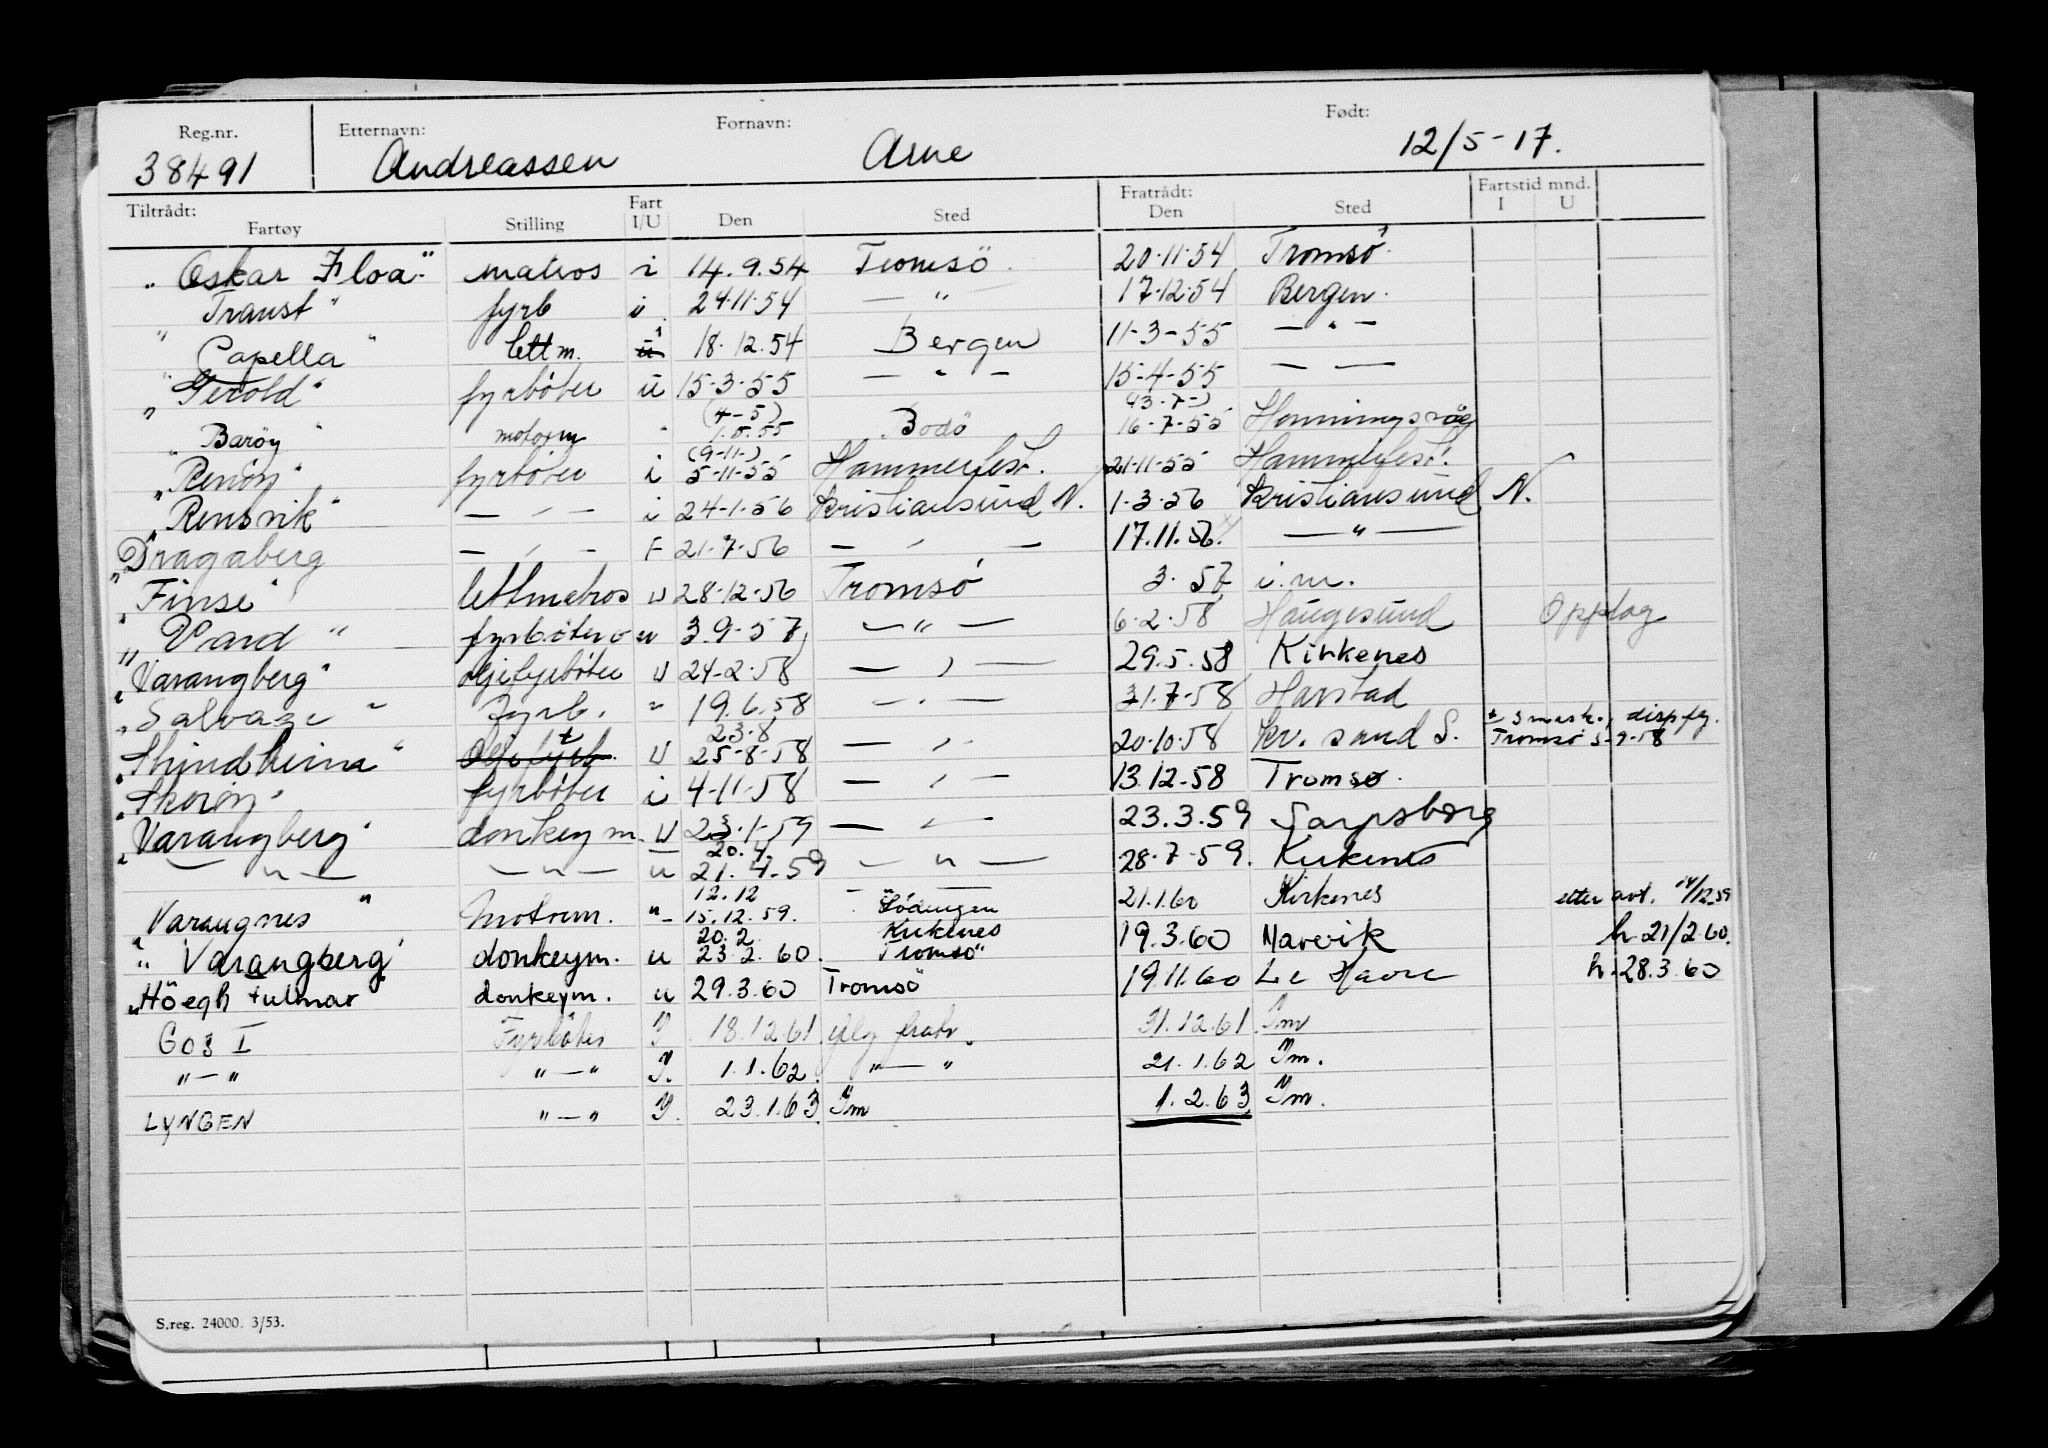 Reg.nr. Etternavn: Fornavn: Født:
38491 Andreassen Arne 12/5-17.
Tiltrådt: Fartøy Stilling Fart I/U Den Sted Fratrådt: Den Sted Fartstid mnd. I U
"Oskar Floa" matros i 14.9.54 Tromsö 20.11.54 Tromsö.
"Traust" fyrb i 24.11.54 — " 17.12.54 Bergen.
"Capella" lettm. i 18.12.54 Bergen 11-3-55 — " —
"Gerold" fyrböter u 15-3-55 — " — 15-4-55 — —
(4-5) (13-7-)
"Baröy" motorm " 1.5.55 Bodö 16-7-55 Honningsvåg
(9-11-)
"Renöy" fyrböter i 5-11-55 Hammerfest. 21-11-55 Hammerfest.
"Rensvik" — " — i 24-1-56 Kristiansund N. 1-3-56 Kristiansund N.
"Dragaberg — " — F 21-7-56 — " — 17.11.56. — " —
"Finse" lettmatros u 28-12-56 Tromsö 3. 57 i.m.
"Vard" fyrböter u 3.9-57 — " — 6.2.58 Haugesund Opplag
"Varangberg" oljefyrböter U 24-2-58 — " — 29.5.58 Kirkenes
"Salvage" fyrb. " 19.6.58 — " — 31.7-58 Harstad
23-8
"Skjendheima" U 25-8-58 — " — 20-10-58 Kr. sand S. 3 mask. disp fg. Tromsö 5-9-58
"Skeröy" fyrböter i 4-11-58 — " — 13.12-58 Tromsø.
"Varangberg" donkeym. U 23-1-59 — " — 23.3.59 Sarpsborg
20.4
" — " — — " — u 21.4-59 — " — 28.7-59. Kirkenes
12.12
Varangnes " Motorm. " 15.12.59. Lödingen 21.1.60 Kirkenes etter avt. 14/12 59
20.2 Kirkenes
"Varangberg" donkeym. u 23.2.60. Tromsö 19.3.60 Narvik h. 21/2.60.
"Höegh Fulmar donkeym. u 29.3.60 Tromsö 19.11.60 Le Havre h. 28.3.60
GOS I Fyrböter I 18.12.61 iflg fratr. 31.12.61 Im
" — " " — " I. 1.1.62. " — " 21.1.62 Im.
LYNGEN " — " I. 23.1.63 Im 1.2.63 Im.
S.reg. 24000. 3/53.